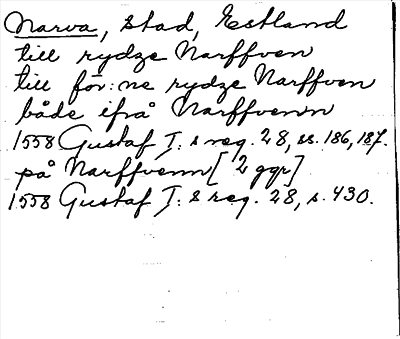 Narva, stad, Estland
till rydze Narffven
till för:ne rydze Narffven
både ifrå Narffvenn
1558 Gustaf I:s reg. 28, ss. 186, 187.
på Narffvenn [2 ggr]
1558 Gustaf I:s reg. 28, s. 430.